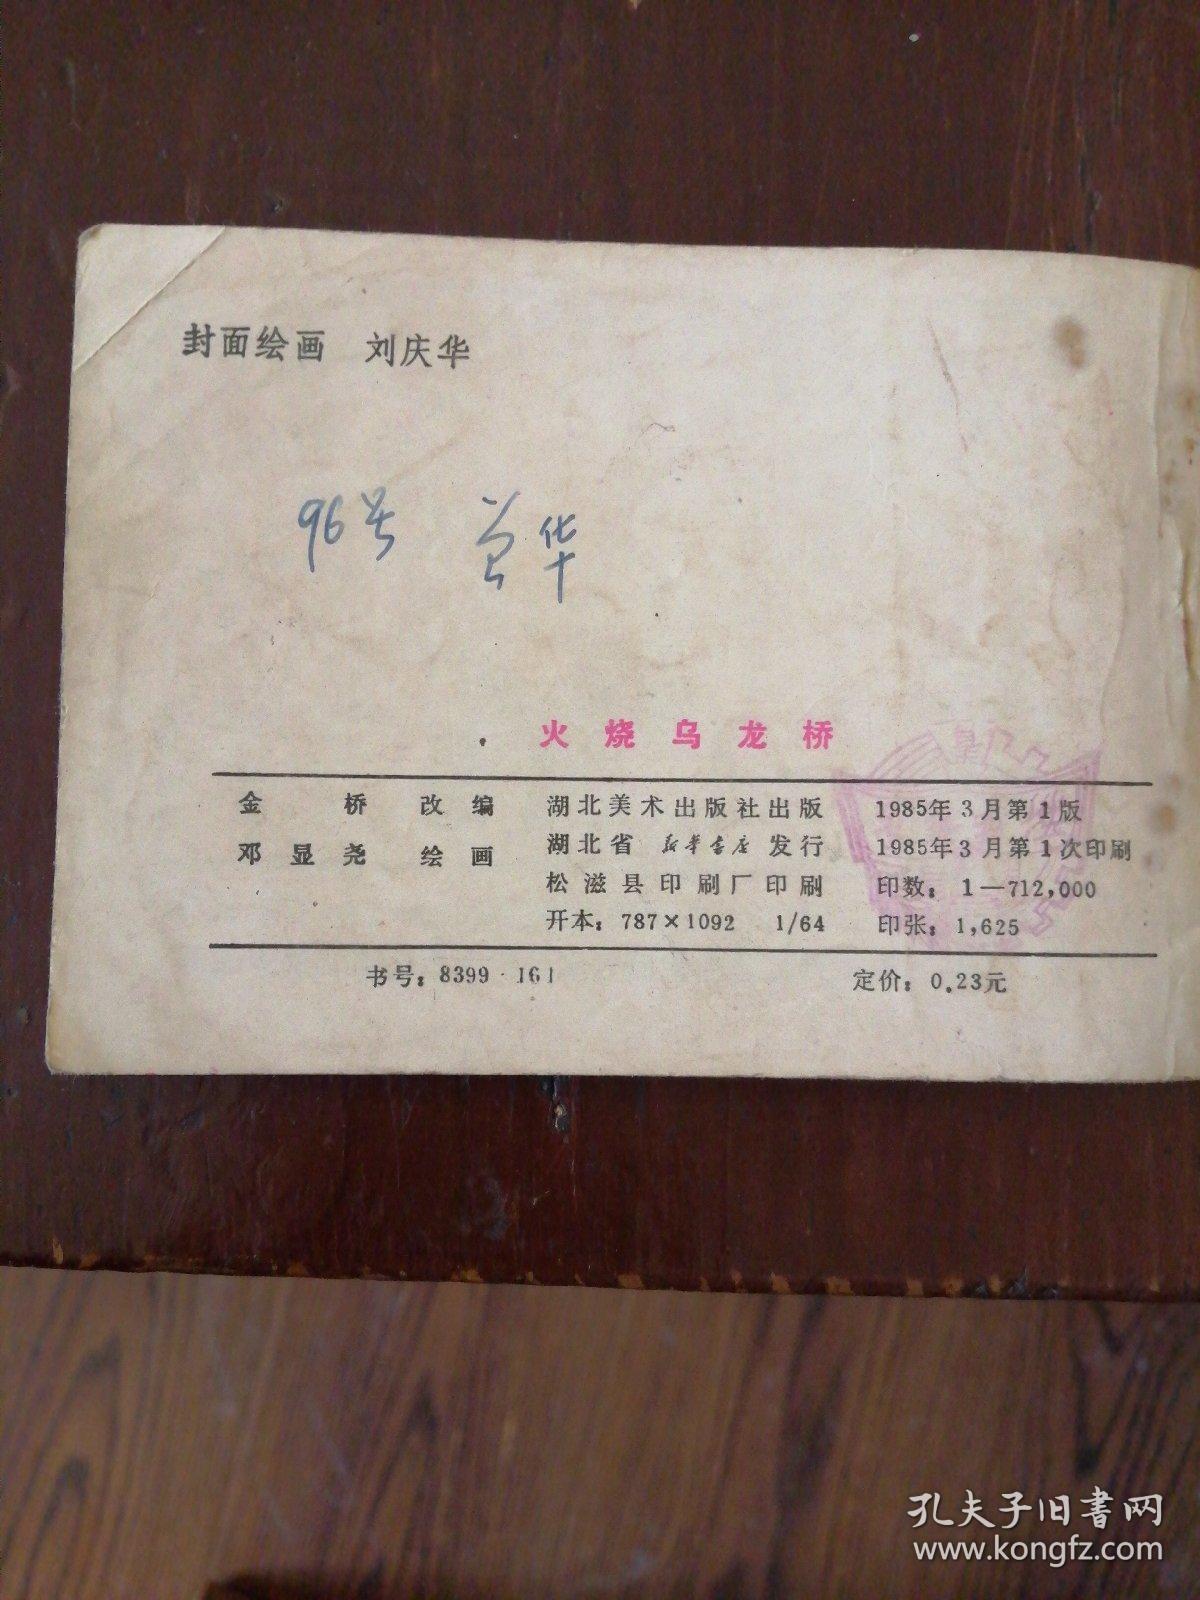 封面绘画 刘庆华
96号 华
火烧乌龙桥
金桥改编
邓显尧绘画
湖北美术出版社出版
湖北省新华书店发行
松滋县印刷厂印刷
开本：787×1092 1/64
1985年3月第1版
1985年3月第1次印刷
印数：1—712,000
印张：1,625
书号：8399·161
定价：0.23元
孔夫子旧書网
www.kongfz.com